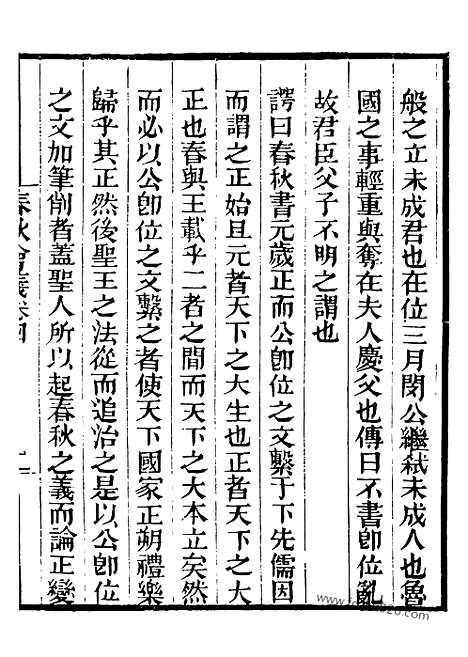 般之立未成君也在位三月閔公繼弑未成人也魯
國之事輕重與奪在夫人慶父也傳曰不書卽位亂
故君臣父子不明之謂也
諤曰春秋書元歲正而公卽位之文繫于下先儒因
而謂之正始且元者天下之大生也正者天下之大
正也春與王載乎二者之閒而天下之大本立矣然
而必以公卽位之文繫之者使天下國家正朔禮樂
歸乎其正然後聖王之法從而追治之是以公卽位
之文加筆削者蓋聖人所以起春秋之義而論正變
春秋會義卷四